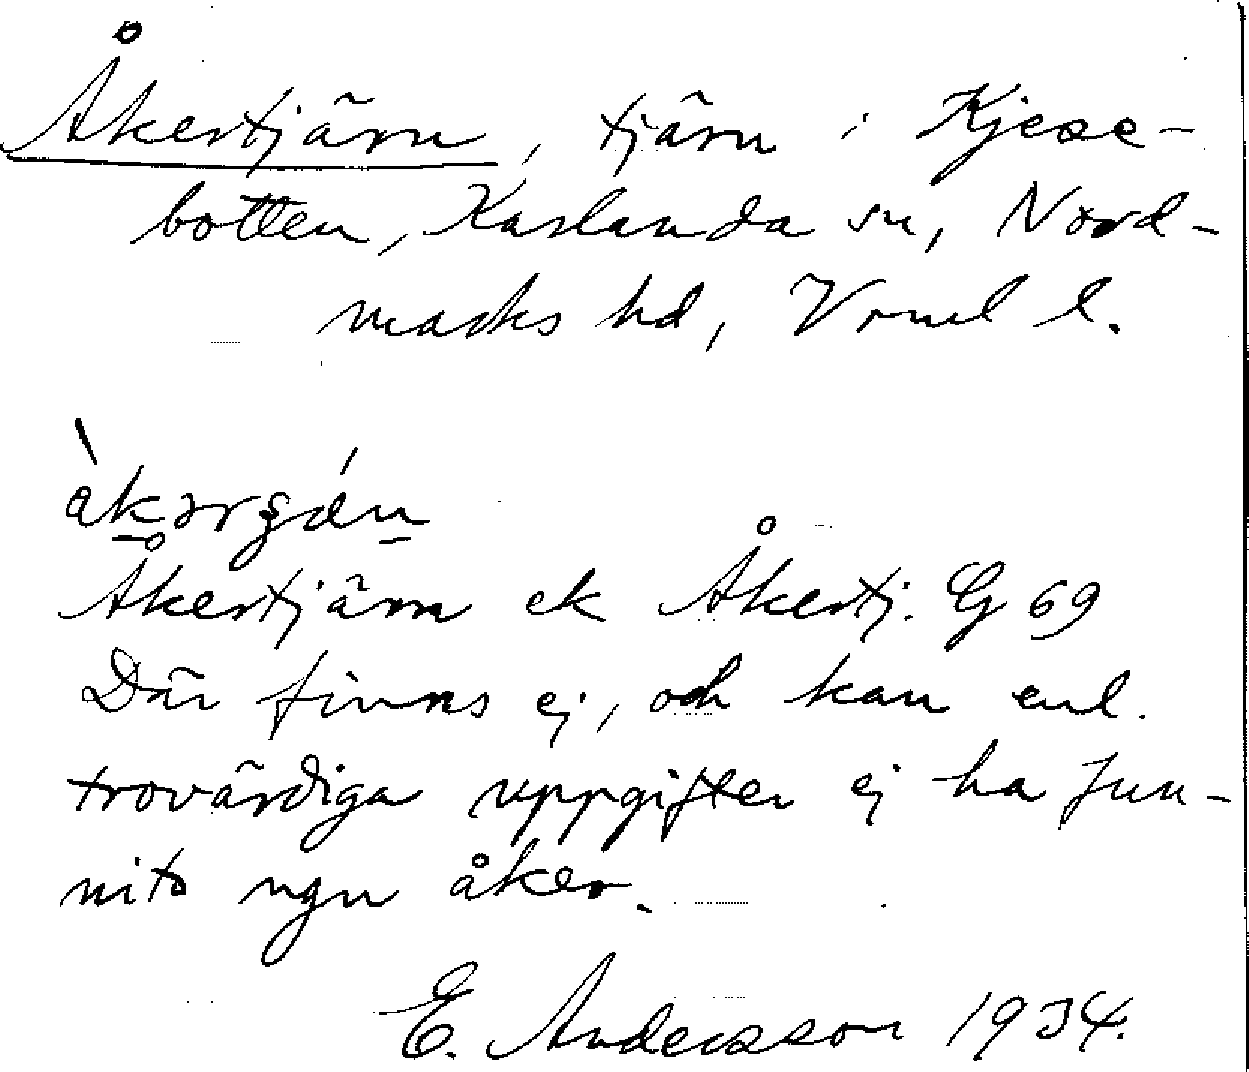 Åkertjärn, tjärn i Kjese-
botten, Karlanda sn, Nord-
marks hd, Vrml l.
Åkertjärn ek Åkertj. G 69
Där finns ej, och kan enl.
trovärdiga uppgifter ej ha fun-
nits ngn åker.
E. Andersson 1934.